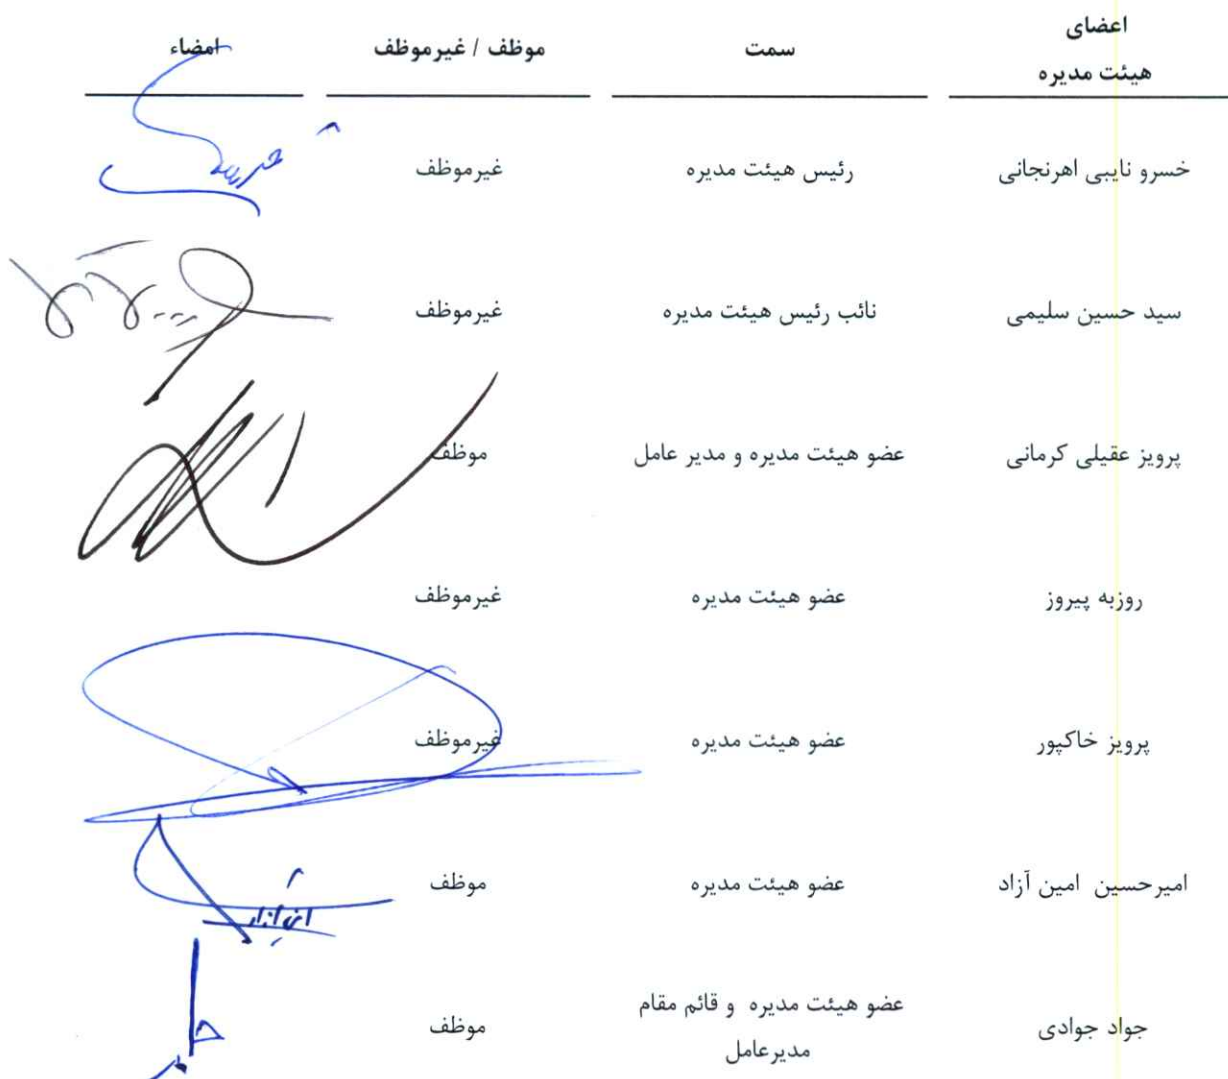 اعضای
هیئت مدیره
سمت
موظف / غیرموظف
امضاء
خسرو نایبی اهرنجانی
رئیس هیئت مدیره
غیرموظف
سید حسین سلیمی
نائب رئیس هیئت مدیره
غیرموظف
پرویز عقیلی کرمانی
عضو هیئت مدیره و مدیر عامل
موظف
روزبه پیروز
عضو هیئت مدیره
غیرموظف
پرویز خاکپور
عضو هیئت مدیره
غیرموظف
امیرحسین امین آزاد
عضو هیئت مدیره
موظف
جواد جوادی
عضو هیئت مدیره و قائم مقام
مدیرعامل
موظف